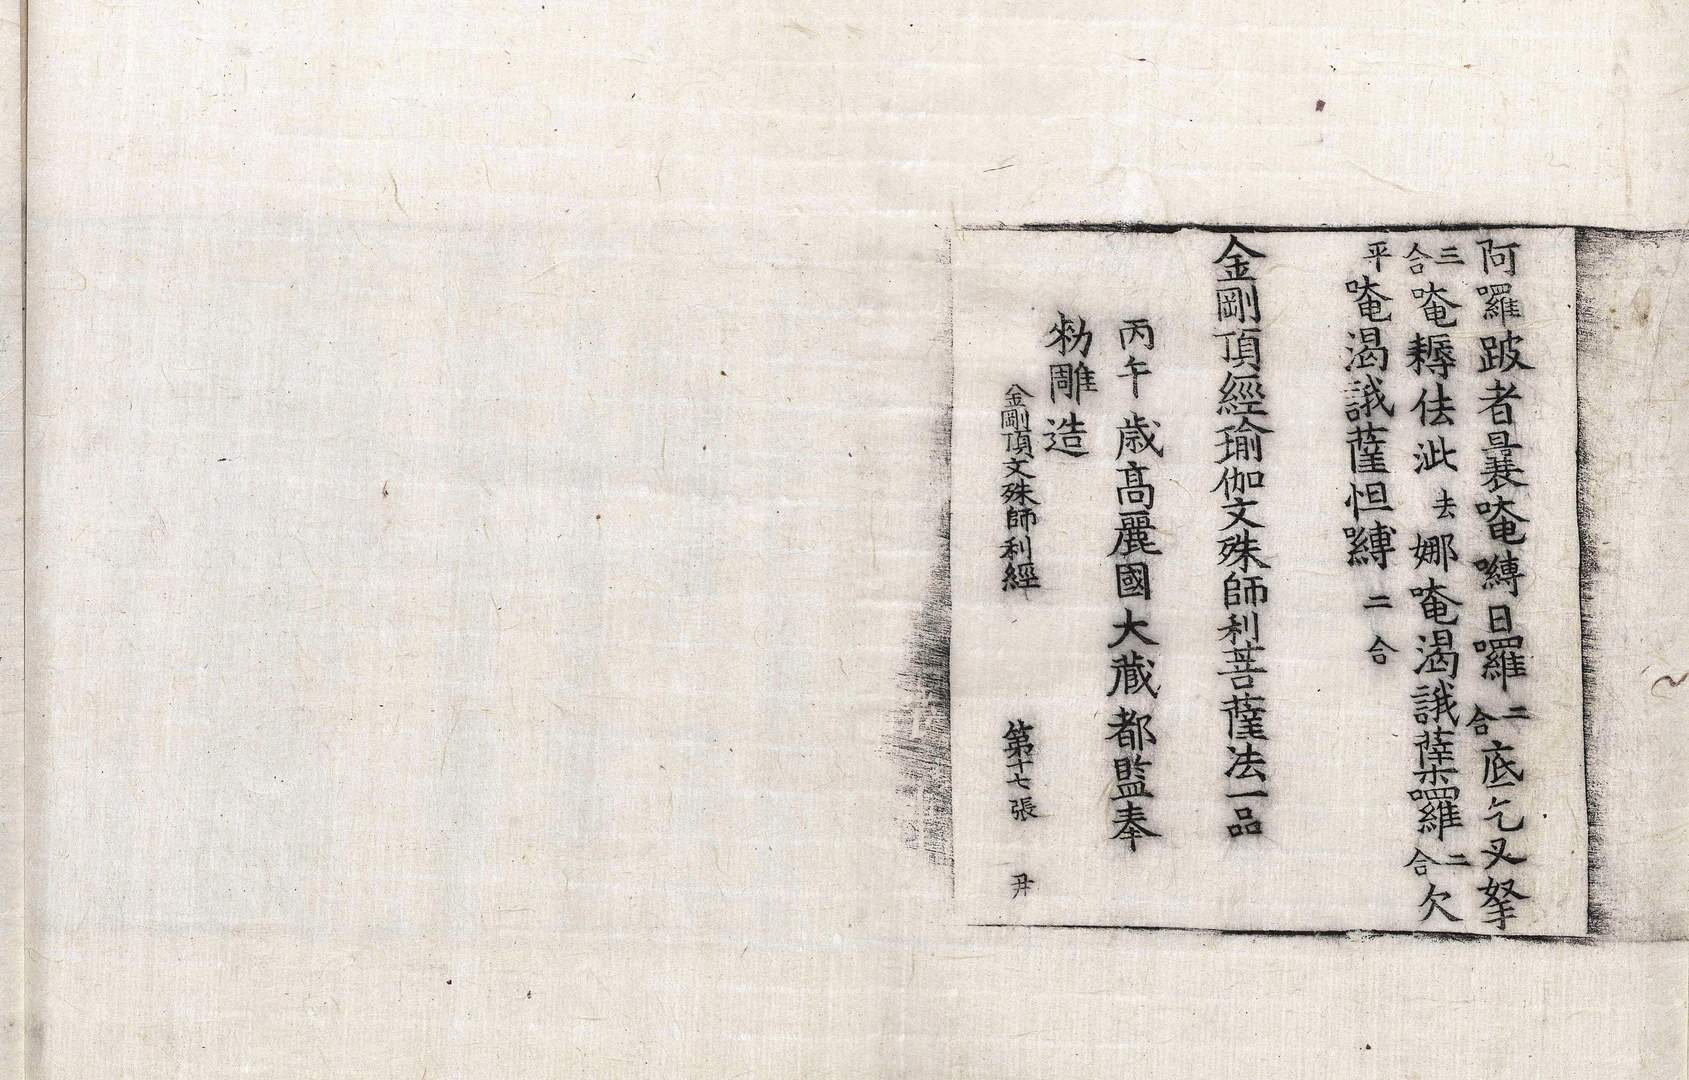 阿囉跛者曩唵嚩日囉二合底乞叉拏
三合唵耨佉泚去娜唵渴誐薩囉二合欠
平唵渴誐薩怛嚩二合
金剛頂經瑜伽文殊師利菩薩法一品
丙午歲高麗國大藏都監奉
勑雕造
金剛頂文殊師利經 第十七張 冄